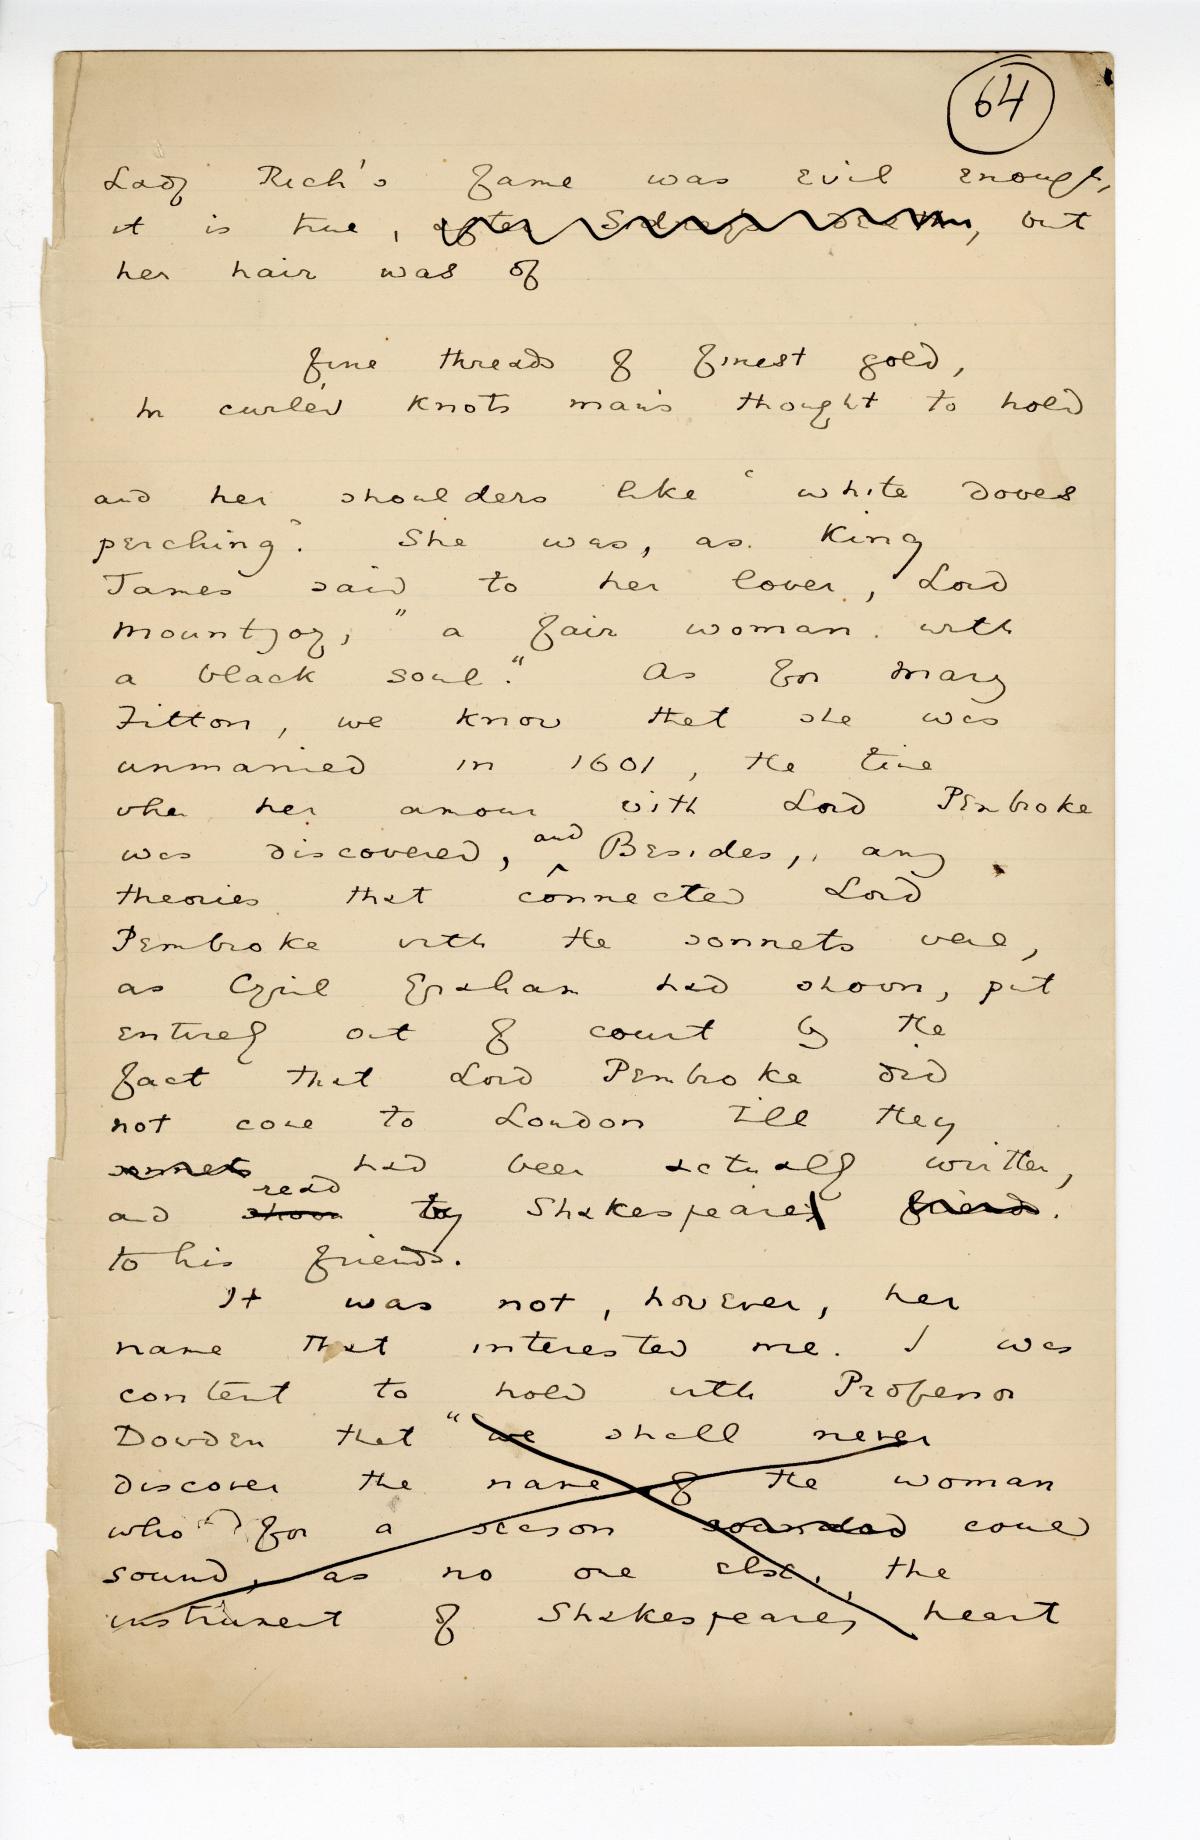 64
Lady Rich's fame was evil enough,
it is true, after Sidney's death, but
her hair was of
fine threads of finest gold,
In curlèd knots man's thought to hold
and her shoulders like "white doves
perching". She was, as King
James said to her lover, Lord
Mountjoy, "a fair woman with
a black soul." As for Mary
Fitton, we know that she was
unmarried in 1601, the time
when her amour with Lord Pembroke
was discovered, and Besides, any
theories that connected Lord
Pembroke with the sonnets were,
as Cyril Graham had shown, put
entirely out of court by the
fact that Lord Pembroke did
not come to London till they
sonnets had been actually written,
read
and shown by Shakespeare friends.
to his friends.
It was not, however, her
name that interested me. I was
content to hold with Professor
Dowden that "we shall never
discover the name of the woman
who for a season sounded could
sound, as no one else, the
instrument of Shakespeare's heart